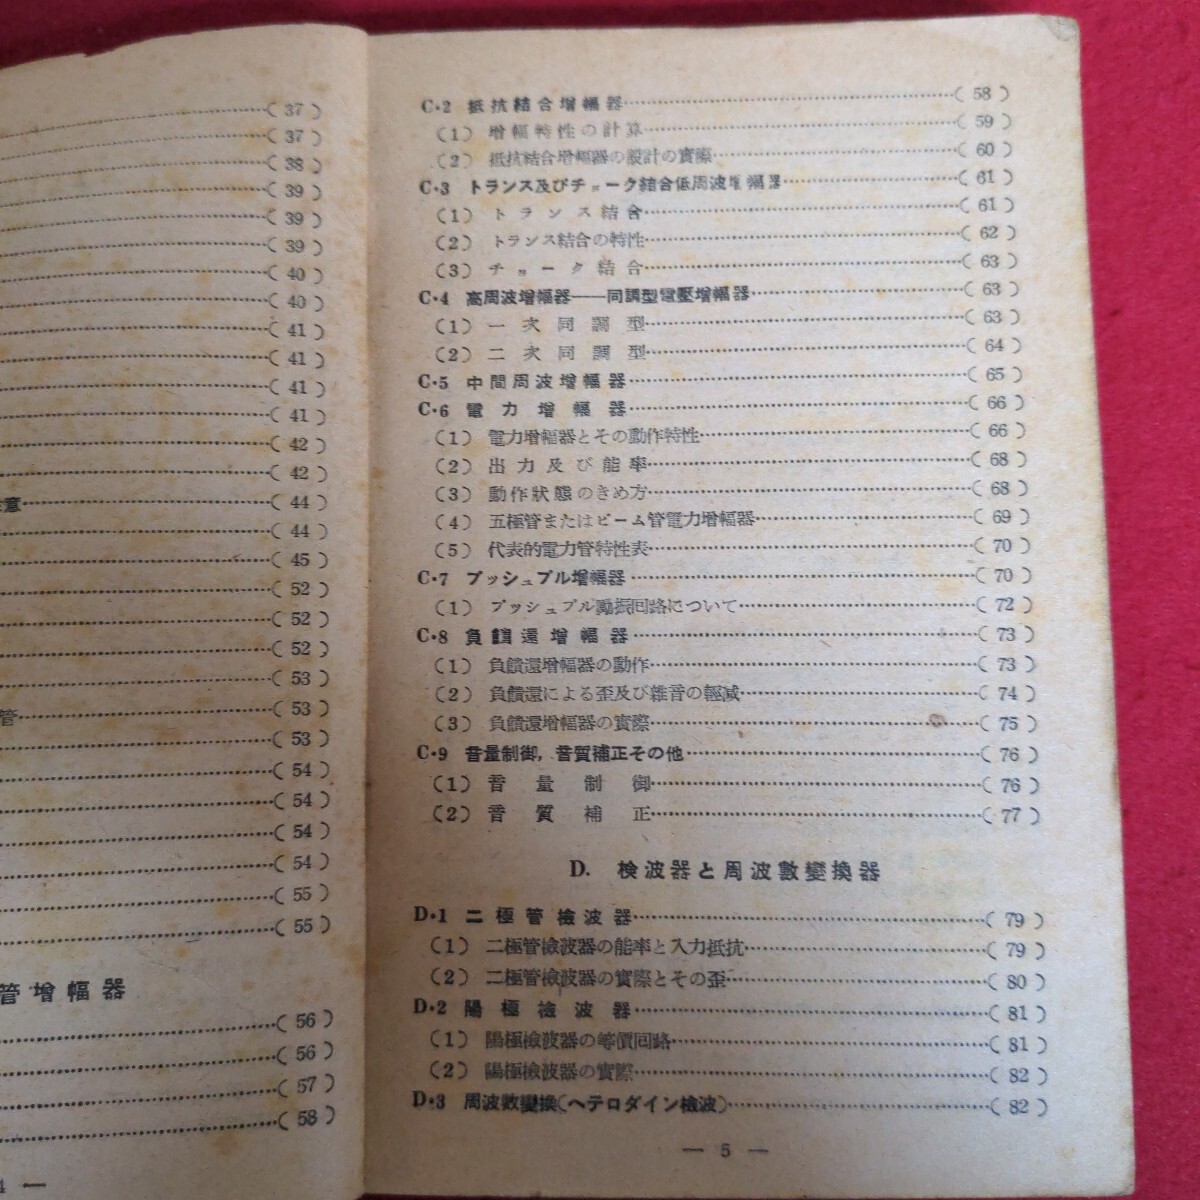 (37)
(37)
(38)
(39)
(39)
(39)
(40)
(40)
(41)
(41)
(41)
(41)
(42)
(42)
意(44)
(44)
(45)
(52)
(52)
(52)
(53)
管(53)
(53)
(54)
(54)
(54)
(54)
(55)
(55)
管増幅器
(56)
(56)
(57)
(58)
4 —
C・2 抵抗結合増幅器(58)
(1) 増幅特性の計算(59)
(2) 抵抗結合増幅器の設計の實際(60)
C・3 トランス及びチョーク結合低周波増幅器(61)
(1) トランス結合(61)
(2) トランス結合の特性(62)
(3) チョーク結合(63)
C・4 高周波増幅器——同調型電壓増幅器(63)
(1) 一次同調型(63)
(2) 二次同調型(64)
C・5 中間周波増幅器(65)
C・6 電力増幅器(66)
(1) 電力増幅器とその動作特性(66)
(2) 出力及び能率(68)
(3) 動作狀態のきめ方(68)
(4) 五極管またはビーム管電力増幅器(69)
(5) 代表的電力管特性表(70)
C・7 プッシュプル増幅器(70)
(1) プッシュプル勵振回路について(72)
C・8 負饋還増幅器(73)
(1) 負饋還増幅器の動作(73)
(2) 負饋還による歪及び雜音の輕減(74)
(3) 負饋還増幅器の實際(75)
C・9 音量制御,音質補正その他(76)
(1) 音量制御(76)
(2) 音質補正(77)
D. 検波器と周波數變換器
D・1 二極管檢波器(79)
(1) 二極管檢波器の能率と入力抵抗(79)
(2) 二極管檢波器の實際とその歪(80)
D・2 陽極檢波器(81)
(1) 陽極檢波器の等價回路(81)
(2) 陽極檢波器の實際(82)
D・3 周波數變換(ヘテロダイン檢波)(82)
— 5 —